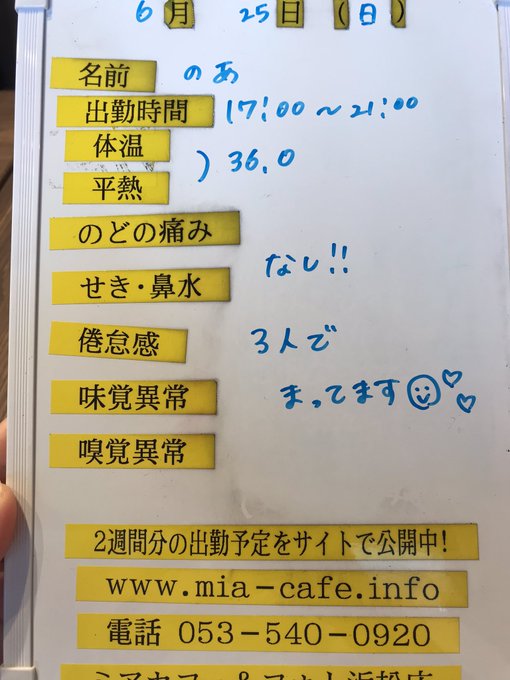 6月 25日(日)
名前 のあ
出勤時間 17:00~21:00
体温
平熱 ) 36.0
のどの痛み
せき・鼻水 なし!!
倦怠感 3人で
味覚異常 まってます
嗅覚異常
2週間分の出勤予定をサイトで公開中!
www.mia-cafe.info
電話 053-540-0920
ミアカフェ&フォト浜松店